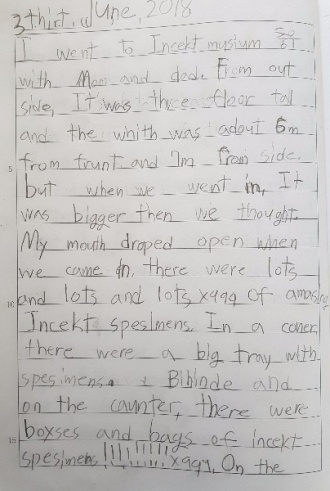 3 thirt, June, 2018
I went to Incekt musium
with Mom and dad. From out
side, It was three floor tal
and the whith was adout 6m
5 from frunt and 7m from side.
but when we went in, It
was bigger then we thought.
My mouth droped open when
we came in. there were lots
10 and lots and lots x999 of amasing
Incekt spesimens. In a coner,
there were a big tray with
spesimens. Bihinde and
on the caunter, there were
15 boxses and bags of incekt
spesimens!!!!!!!!!! x999. On the